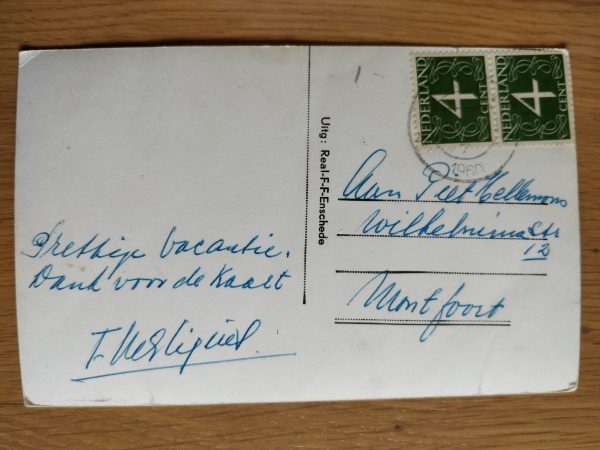 Prettige vacantie.
Dank voor de Kaart
Uitg: Real-F-F-Enschede
NEDERLAND 4 CENT
NEDERLAND 4 CENT
1960
Aan Piet Hellemons
Wilhelminastr
12
Montfoort